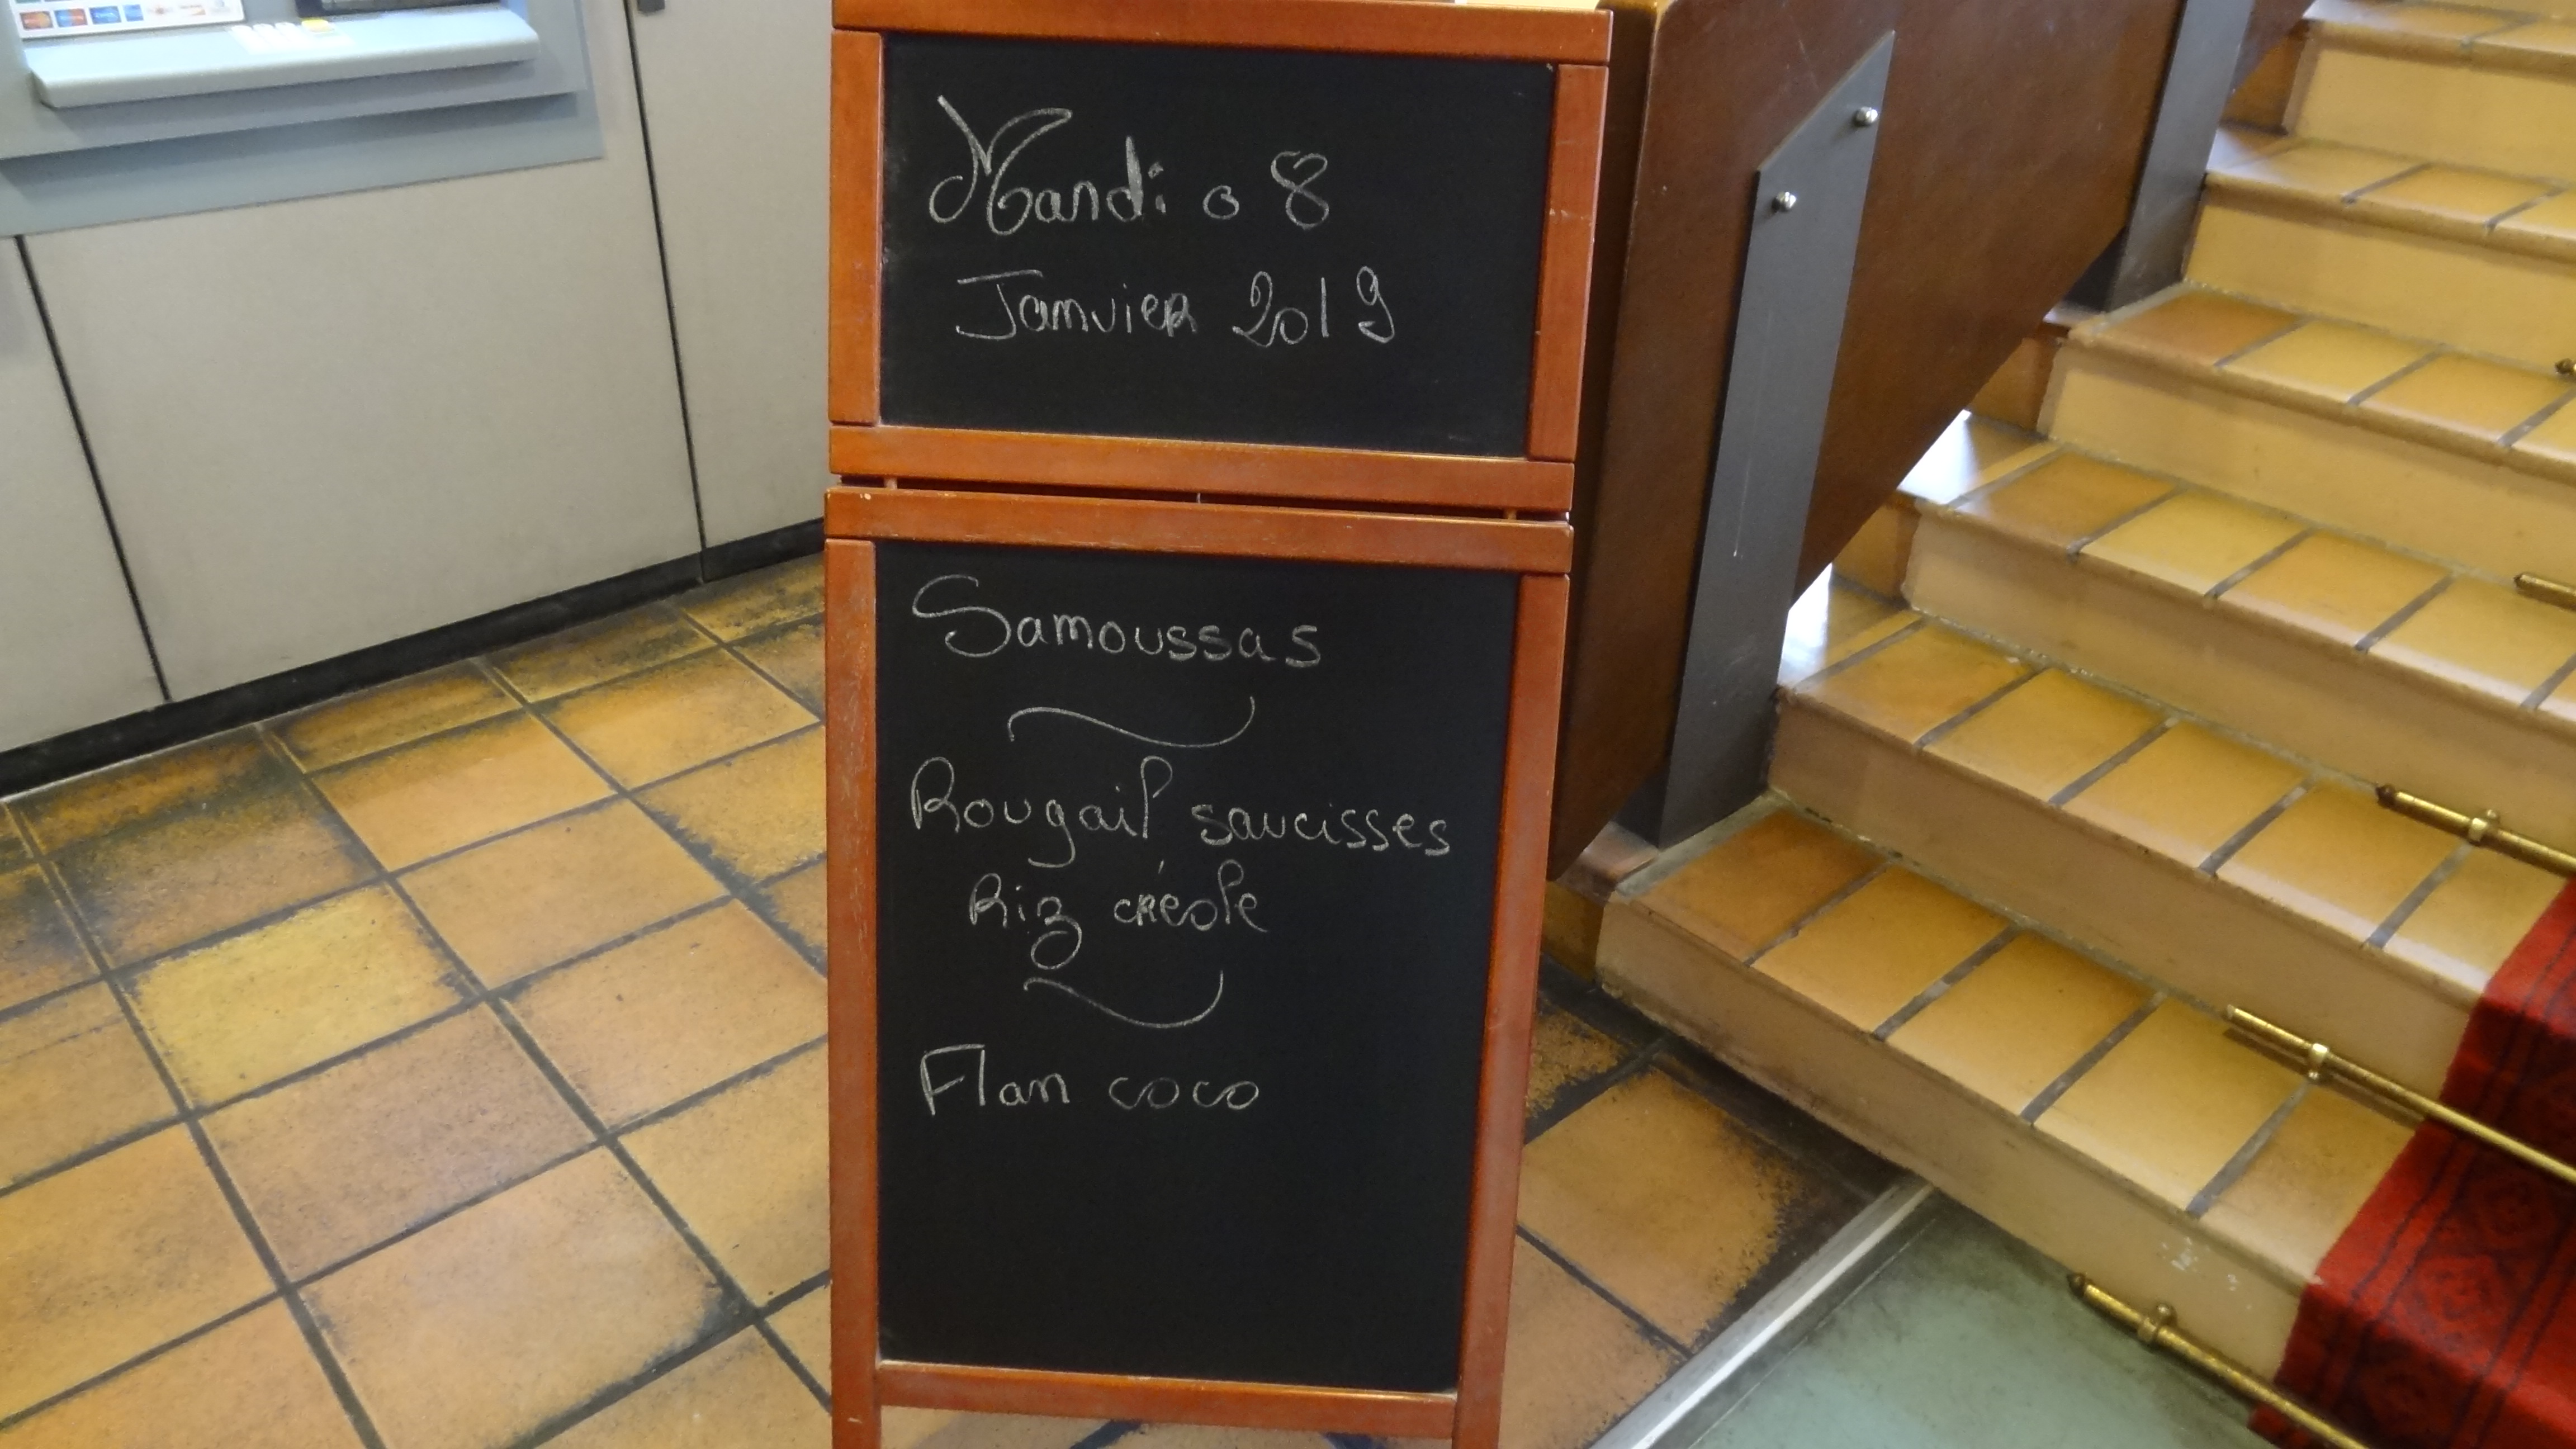 Mardi o 8
Janvier 2019
Samoussas
Rougail saucisses
Riz créole
Flan coco